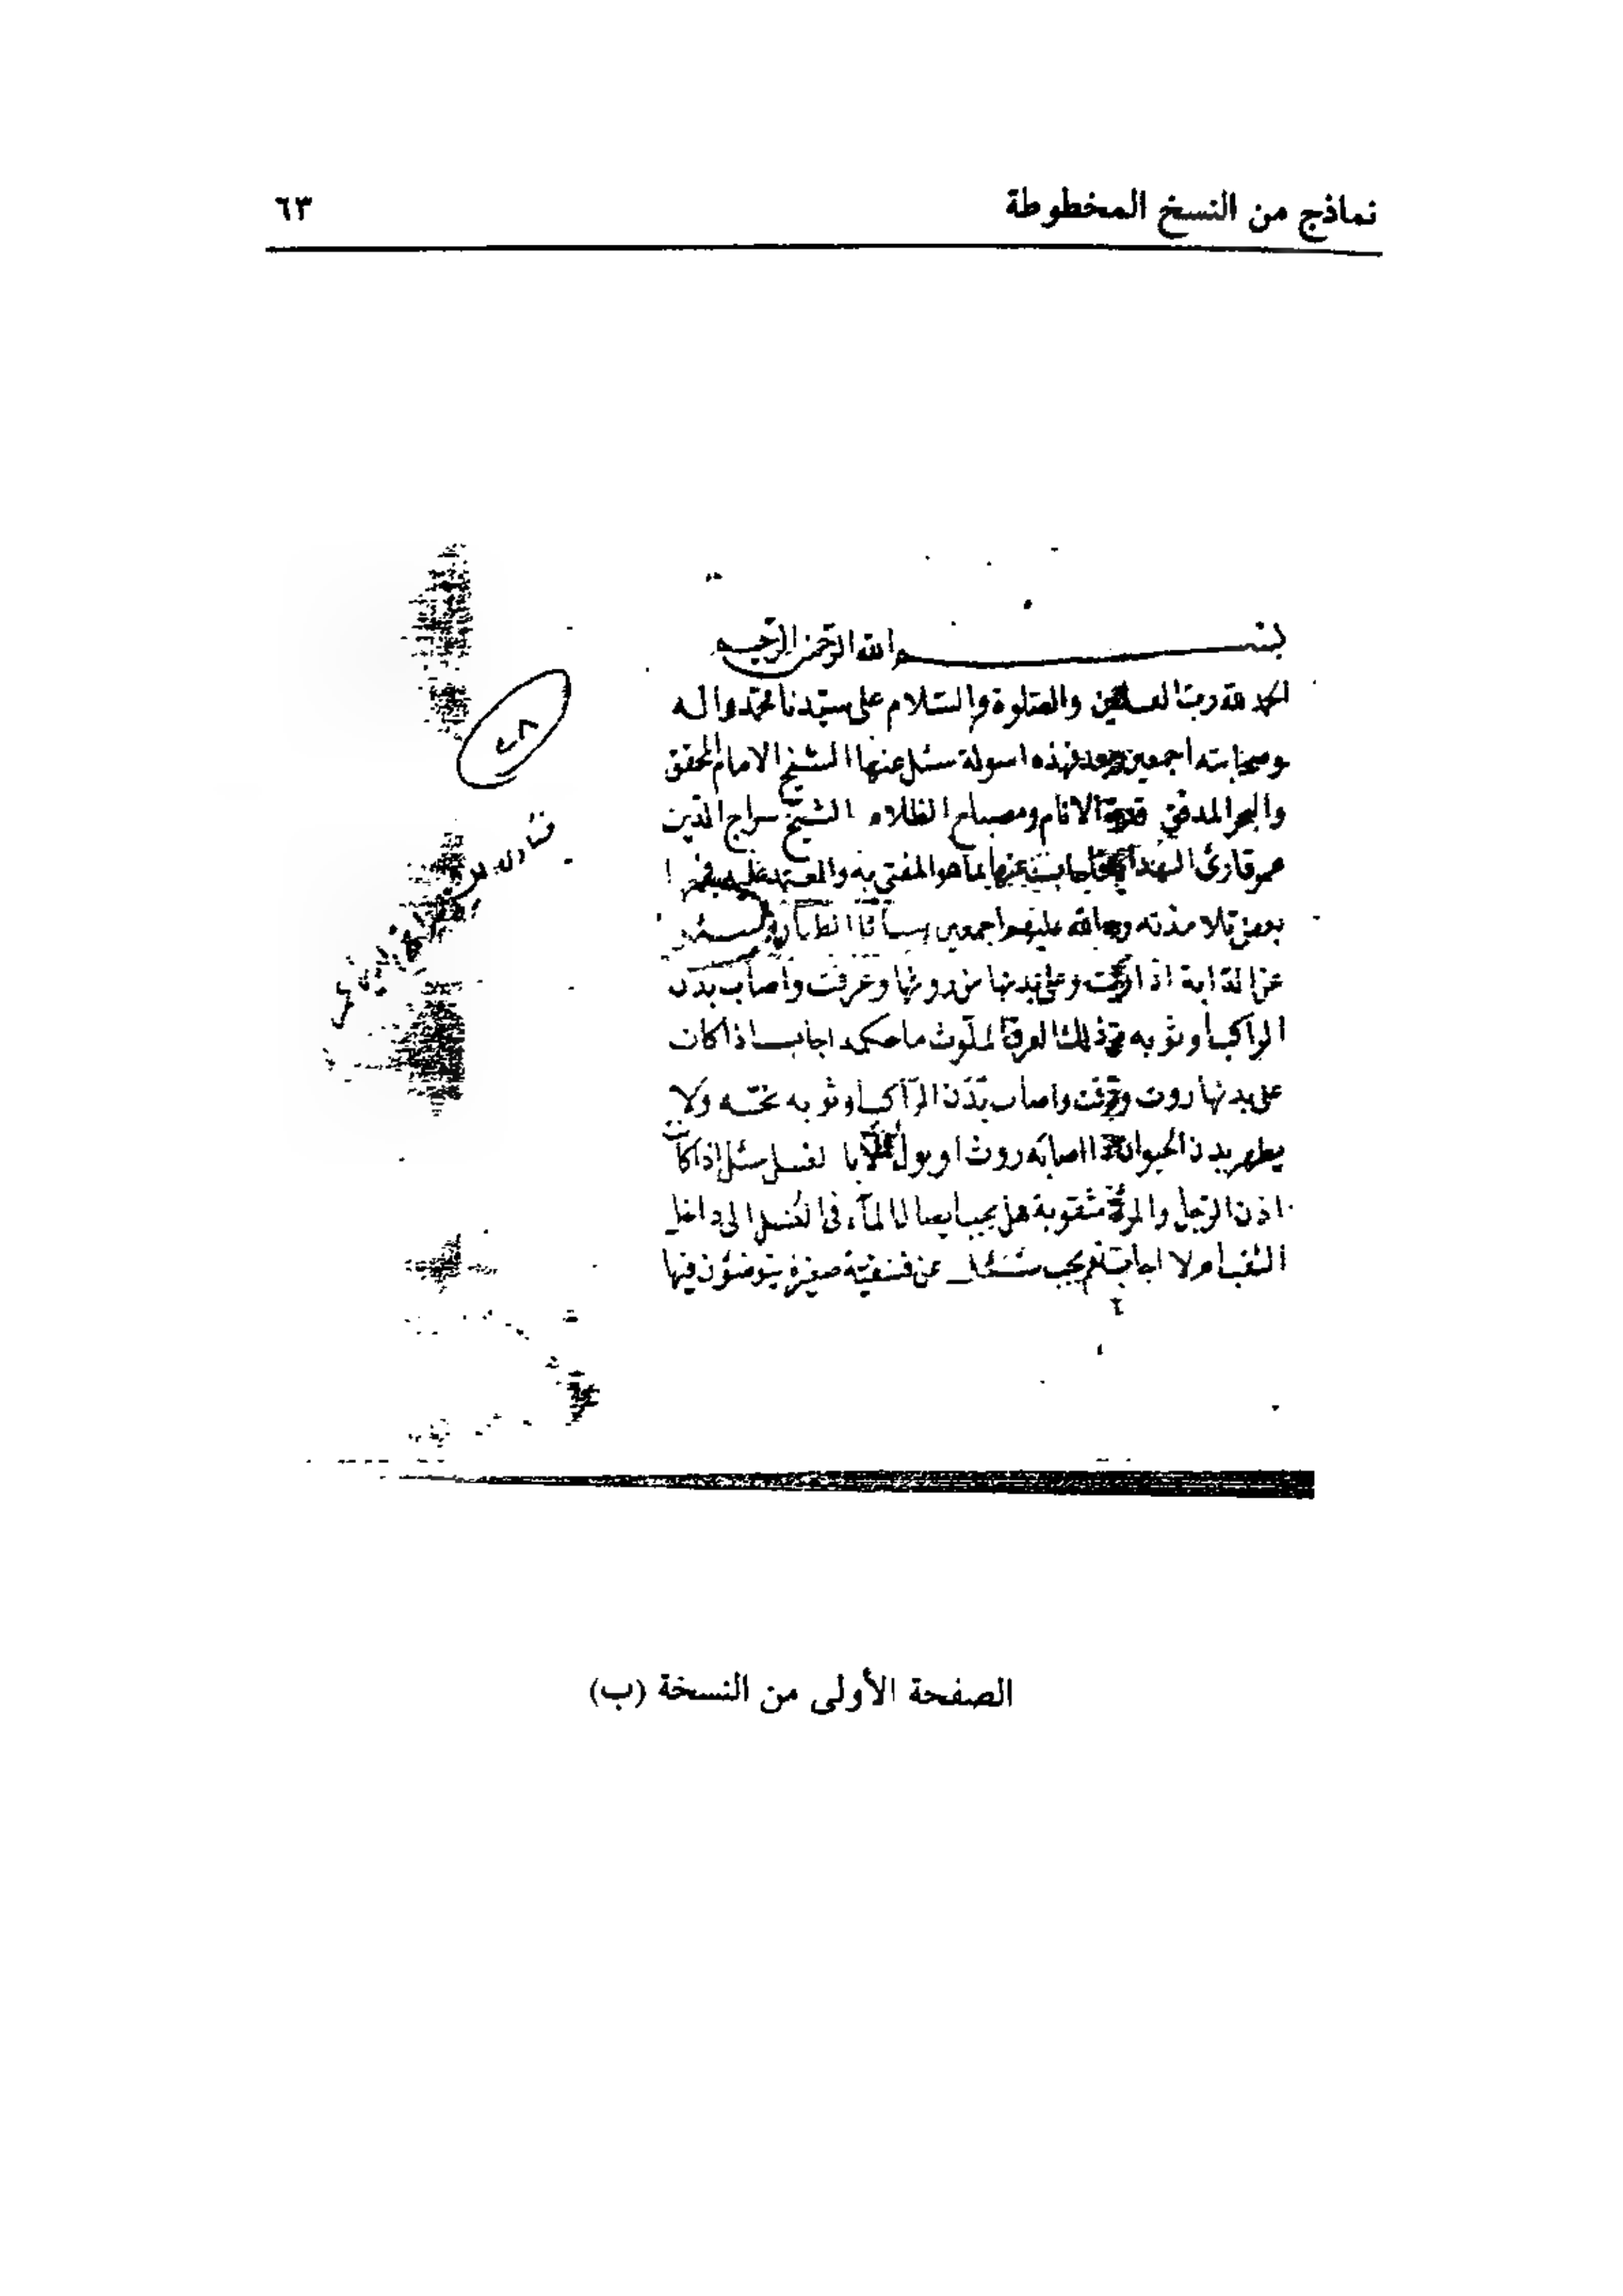 نماذج من النسخ المخطوطة
٦٣
بسم الله الرحمن الرحيم
الحمد لله رب العالمين والصلوة والسلام على سيدنا محمد واله
وصحابته اجمعين وبعد فهذه اسولة سئل عنها الشيخ الامام المحقق
والبحر المدقق قدوة الانام ومصباح الظلام الشيخ سراج الدين
عمر قارئ الهداية عنها بما هو المفتى به والمعتمد عليه
بعض تلامذته رحمة الله عليهم اجمعين مسائل الطهارة سئل
عن الدابة اذا وعلى بدنها من روثها وعرقت واصاب بدن
الراكب او ثوبه من ذلك العرق الملوث ما حكمه اجاب اذا كان
على بدنها روث وعرقت واصاب بدن الراكب او ثوبه نجسه ولا
يطهر بدن الحيوان اذا اصابه روث او بول الا بالغسل سئل إذا كان
اذن الرجل والمرئة مثقوبة هل يجب ايصال الماء في الغسل الى داخل
الثقب ام لا اجاب نعم يجب سئل عن فسقية صغيرة يتوضؤن فيها
الصفحة الأولى من النسخة (ب)